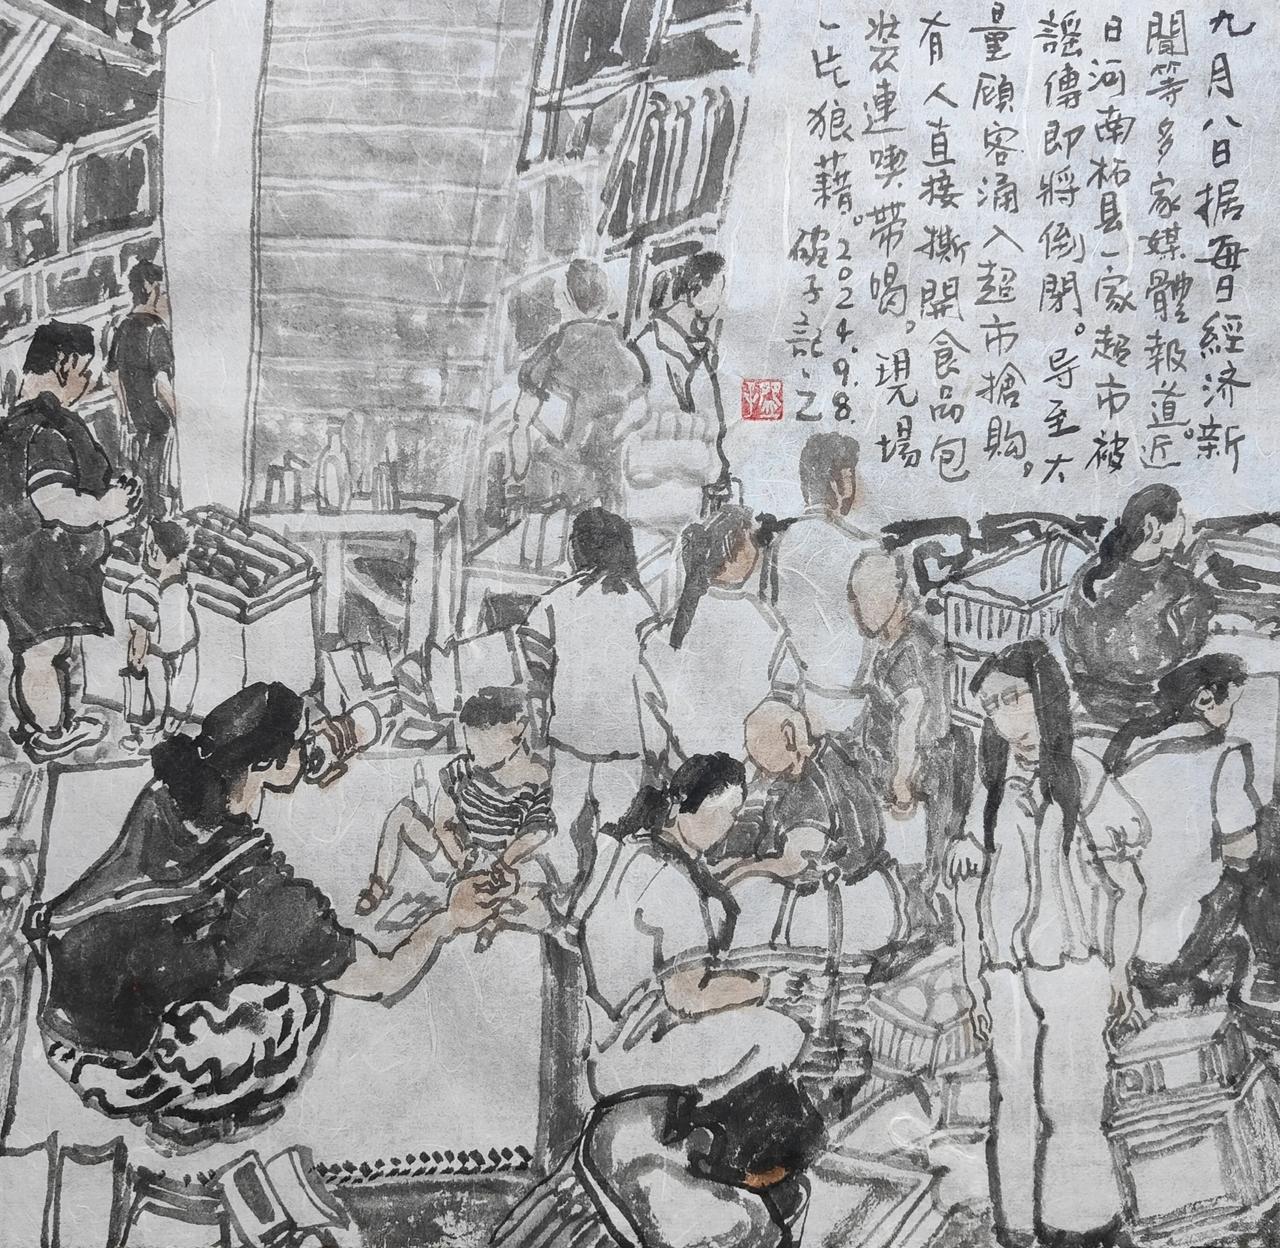 九月八日据每日經济新
聞等多家媒體報道。近
日河南柘县一家超市被
謡傳即將倒閉。导至大
量顾客涌入超市搶购，
有人直接撕開食品包
裝連喫带喝。現場
一片狼藉。2024.9.8.
子記